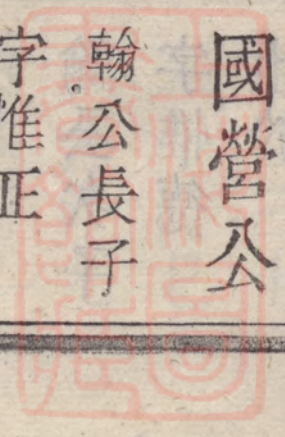 國營公
翰公長子
字惟正